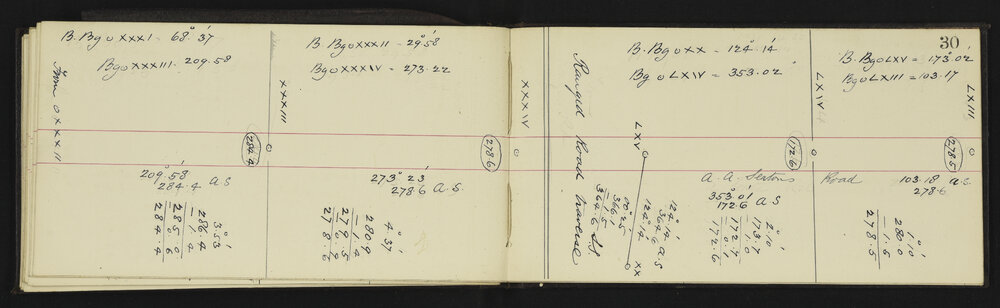 B. Bg o XXXI - 68° 37'
Bg o XXXIII. 209.58
From o XXXII
284.4
209° 58'
284.4 a.s
3° 53'
286.4
- 1.4
285.0
- 0.6
284.4
B. Bg o XXXII - 29° 58'
Bg o XXXIV = 273.22
XXXIII
278.6
273° 23'
278.6 a.s.
4° 37'
280.9
- 1.4
279.5
- 0.9
278.6
XXXIV
Ranged Road Traverse
B. Bg o XX = 124° 14'
Bg o LXIV = 353.02'
LXV
XX
124° 14'
124° 14'
364.6 a.s
00° 25'
366.
- 1.5
364.6 S.S.
172.6
A. A. Sextons
353° 01'
172.6 a s
2° 10'
173.7
- 1.0
172.7
- 0.1
172.6
LXIV
30
B. Bg o LXV = 173° 02'
Bg o LXIII = 103.17
LXIII
278.5
Road
103.18 a.s.
278.6
1° 10'
280.0
- 1.5
278.5